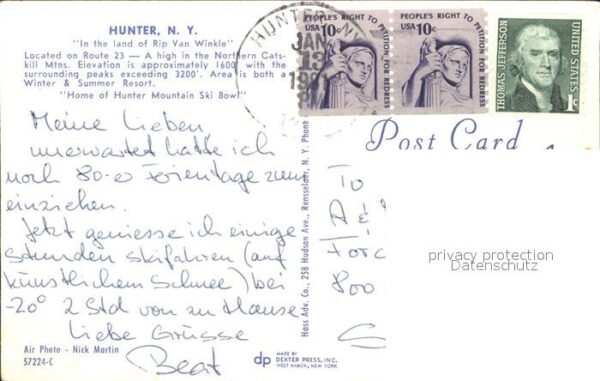 HUNTER, N. Y.
"In the land of Rip Van Winkle"
Located on Route 23 — A high in the Northern Cats-
kill Mtns. Elevation is approximately 1600' with the
surrounding peaks exceeding 3200'. Area is both a
Winter & Summer Resort.
"Home of Hunter Mountain Ski Bowl"
Meine Lieben
unerwartet hatte ich
noch 80-er Ferientage zum
einziehen.
Jetzt geniesse ich einige
Stunden skifahren (auf
künstlichem Schnee) bei
-20° 2 Std von zu Hause
Liebe Grüsse
Beat
Air Photo - Nick Martin
57224-C
dp MADE BY
DEXTER PRESS, INC.
WEST NYACK, NEW YORK
Hass Adv. Co., 258 Hudson Ave., Rensselaer, N. Y. Phone
HUNTER NY
JAN
13
1981
PEOPLE'S RIGHT TO PETITION FOR REDRESS
USA 10c
PEOPLE'S RIGHT TO PETITION FOR REDRESS
USA 10c
THOMAS JEFFERSON
UNITED STATES
1c
Post Card
To
A &
Forc
800
privacy protection
Datenschutz